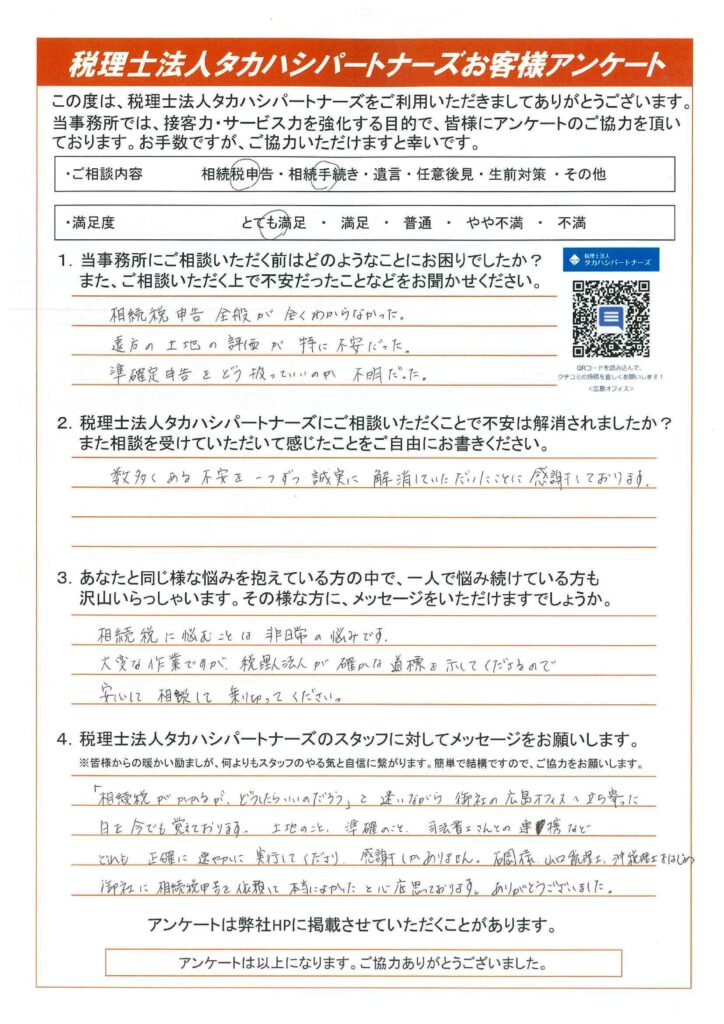 税理士法人タカハシパートナーズお客様アンケート
この度は、税理士法人タカハシパートナーズをご利用いただきましてありがとうございます。
当事務所では、接客力・サービス力を強化する目的で、皆様にアンケートのご協力を頂い
ております。お手数ですが、ご協力いただけますと幸いです。
・ご相談内容 相続税申告・相続手続き・遺言・任意後見・生前対策・その他
・満足度 とても満足 ・ 満足 ・ 普通 ・ やや不満 ・ 不満
1. 当事務所にご相談いただく前はどのようなことにお困りでしたか？
また、ご相談いただく上で不安だったことなどをお聞かせください。
税理士法人
タカハシパートナーズ
QRコードを読み込んで、
クチコミの投稿を宜しくお願いします！
<広島オフィス>
相続税申告全般が全くわからなかった。
遠方の土地の評価が特に不安だった。
準確定申告をどう扱っていいのか不明だった。
2. 税理士法人タカハシパートナーズにご相談いただくことで不安は解消されましたか？
また相談を受けていただいて感じたことをご自由にお書きください。
数多くある不安を一つずつ誠実に解消していただいたことに感謝しております。
3. あなたと同じ様な悩みを抱えている方の中で、一人で悩み続けている方も
沢山いらっしゃいます。その様な方に、メッセージをいただけますでしょうか。
相続税に悩むことは非日常の悩みです。
大変な作業ですが、税理士法人が確かな道標を示してくださるので
安心して相談して乗り切ってください。
4. 税理士法人タカハシパートナーズのスタッフに対してメッセージをお願いします。
※皆様からの暖かい励ましが、何よりもスタッフのやる気と自信に繋がります。簡単で結構ですので、ご協力をお願いします。
「相続税がかかるが、どうしたらいいのだろう」と迷いながら御社の広島オフィスへ立ち寄った
日を今でも覚えております。土地のこと、準確のこと、司法書士さんとの連携など
どれも正確に速やかに実行してくださり、感謝しかありません。石岡様、山口税理士、沖税理士をはじめ
御社に相続税申告を依頼して本当によかったと心底思っております。ありがとうございました。
アンケートは弊社HPに掲載させていただくことがあります。
アンケートは以上になります。ご協力ありがとうございました。